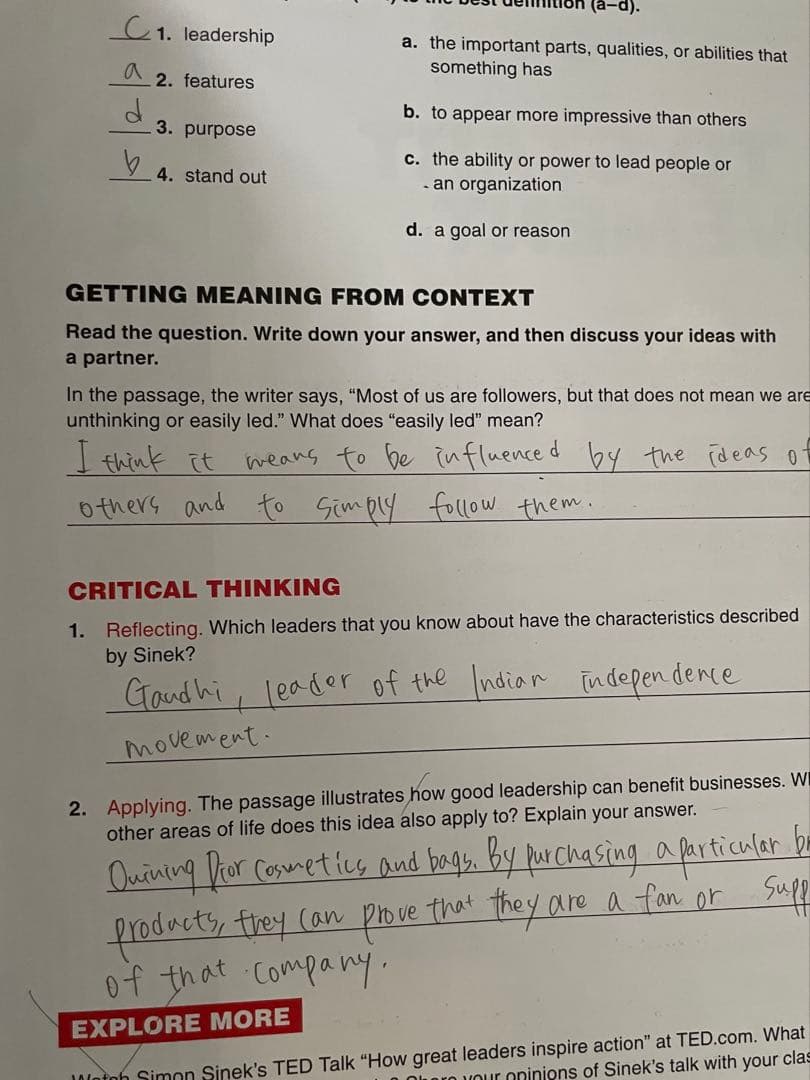 definition (a–d).
C 1. leadership
a 2. features
d 3. purpose
b 4. stand out
a. the important parts, qualities, or abilities that
something has
b. to appear more impressive than others
c. the ability or power to lead people or
an organization
d. a goal or reason
GETTING MEANING FROM CONTEXT
Read the question. Write down your answer, and then discuss your ideas with
a partner.
In the passage, the writer says, “Most of us are followers, but that does not mean we are
unthinking or easily led.” What does “easily led” mean?
I think it means to be influenced by the ideas of
others and to simply follow them.
CRITICAL THINKING
1. Reflecting. Which leaders that you know about have the characteristics described
by Sinek?
Gandhi, leader of the Indian independence
movement.
2. Applying. The passage illustrates how good leadership can benefit businesses.
other areas of life does this idea also apply to? Explain your answer.
Dior Cosmetics and bags. By purchasing a particular
products, they can prove that they are a fan or
of that company.
EXPLORE MORE
Watch Simon Sinek’s TED Talk “How great leaders inspire action” at TED.com. What
your opinions of Sinek’s talk with your